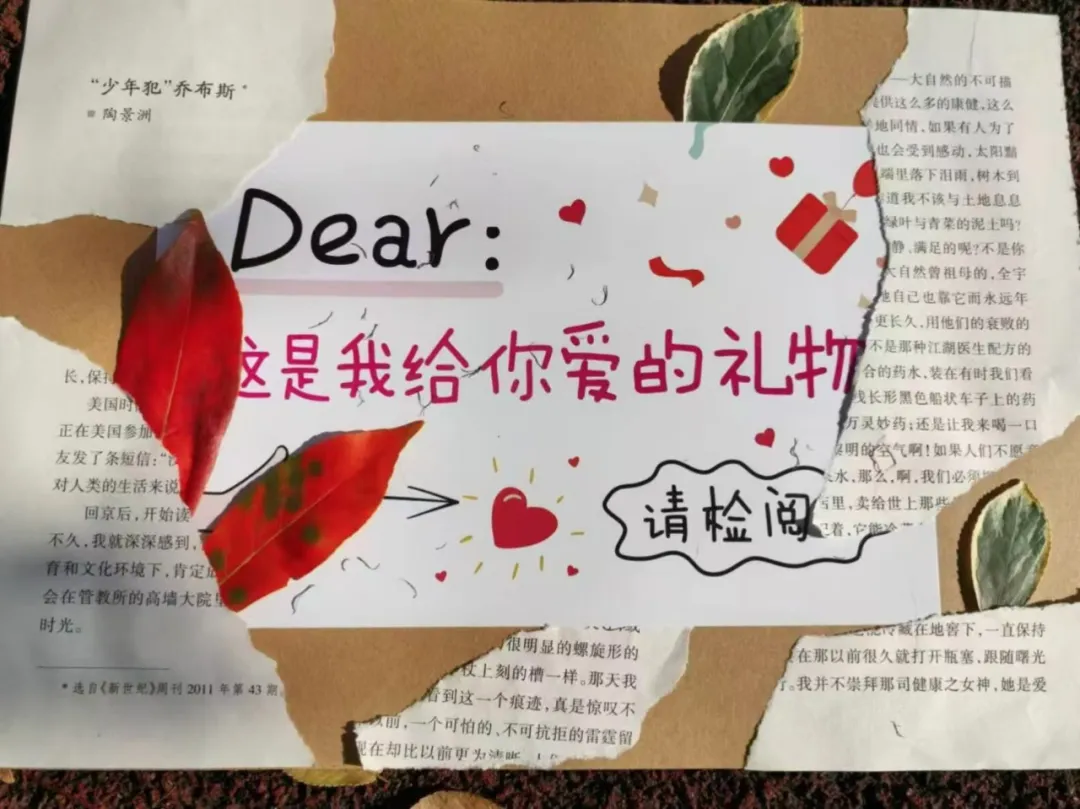 “少年犯”乔布斯*
■ 陶景洲
Dear:
这是我给你爱的礼物
请检阅
长，保持
美国时
正在美国参加
友发了条短信：“
对人类的生活来说
回京后，开始读
不久，我就深深感到，
育和文化环境下，肯定
会在管教所的高墙大院里
时光。
* 选自《新世纪》周刊 2011 年第 43 期。
——大自然的不可描
提供这么多的康健，这么
地同情，如果有人为了
也会受到感动，太阳黯
端里落下泪雨，树木到
道我不该与土地息息
绿叶与青菜的泥土吗？
静、满足的呢？不是你
大自然曾祖母的，全宇
她自己也靠它而永远年
更长久，用他们的衰败的
不是那种江湖医生配方的
合的药水，装在有时我们看
浅长形黑色船状车子上的药
万灵妙药；还是让我来喝一口
黎明的空气啊！如果人们不愿意
水，那么，啊，我们必须
店里，卖给世上那些
着，它能冷
很明显的螺旋形的
杖上刻的槽一样。那天我
看到这一个痕迹，真是惊叹不
以前，一个可怕的、不可抗拒的雷霆留
现在却比以前更为清晰
能冷藏在地窖下，一直保持
在那以前很久就打开瓶塞，跟随曙光
。我并不崇拜那司健康之女神，她是爱